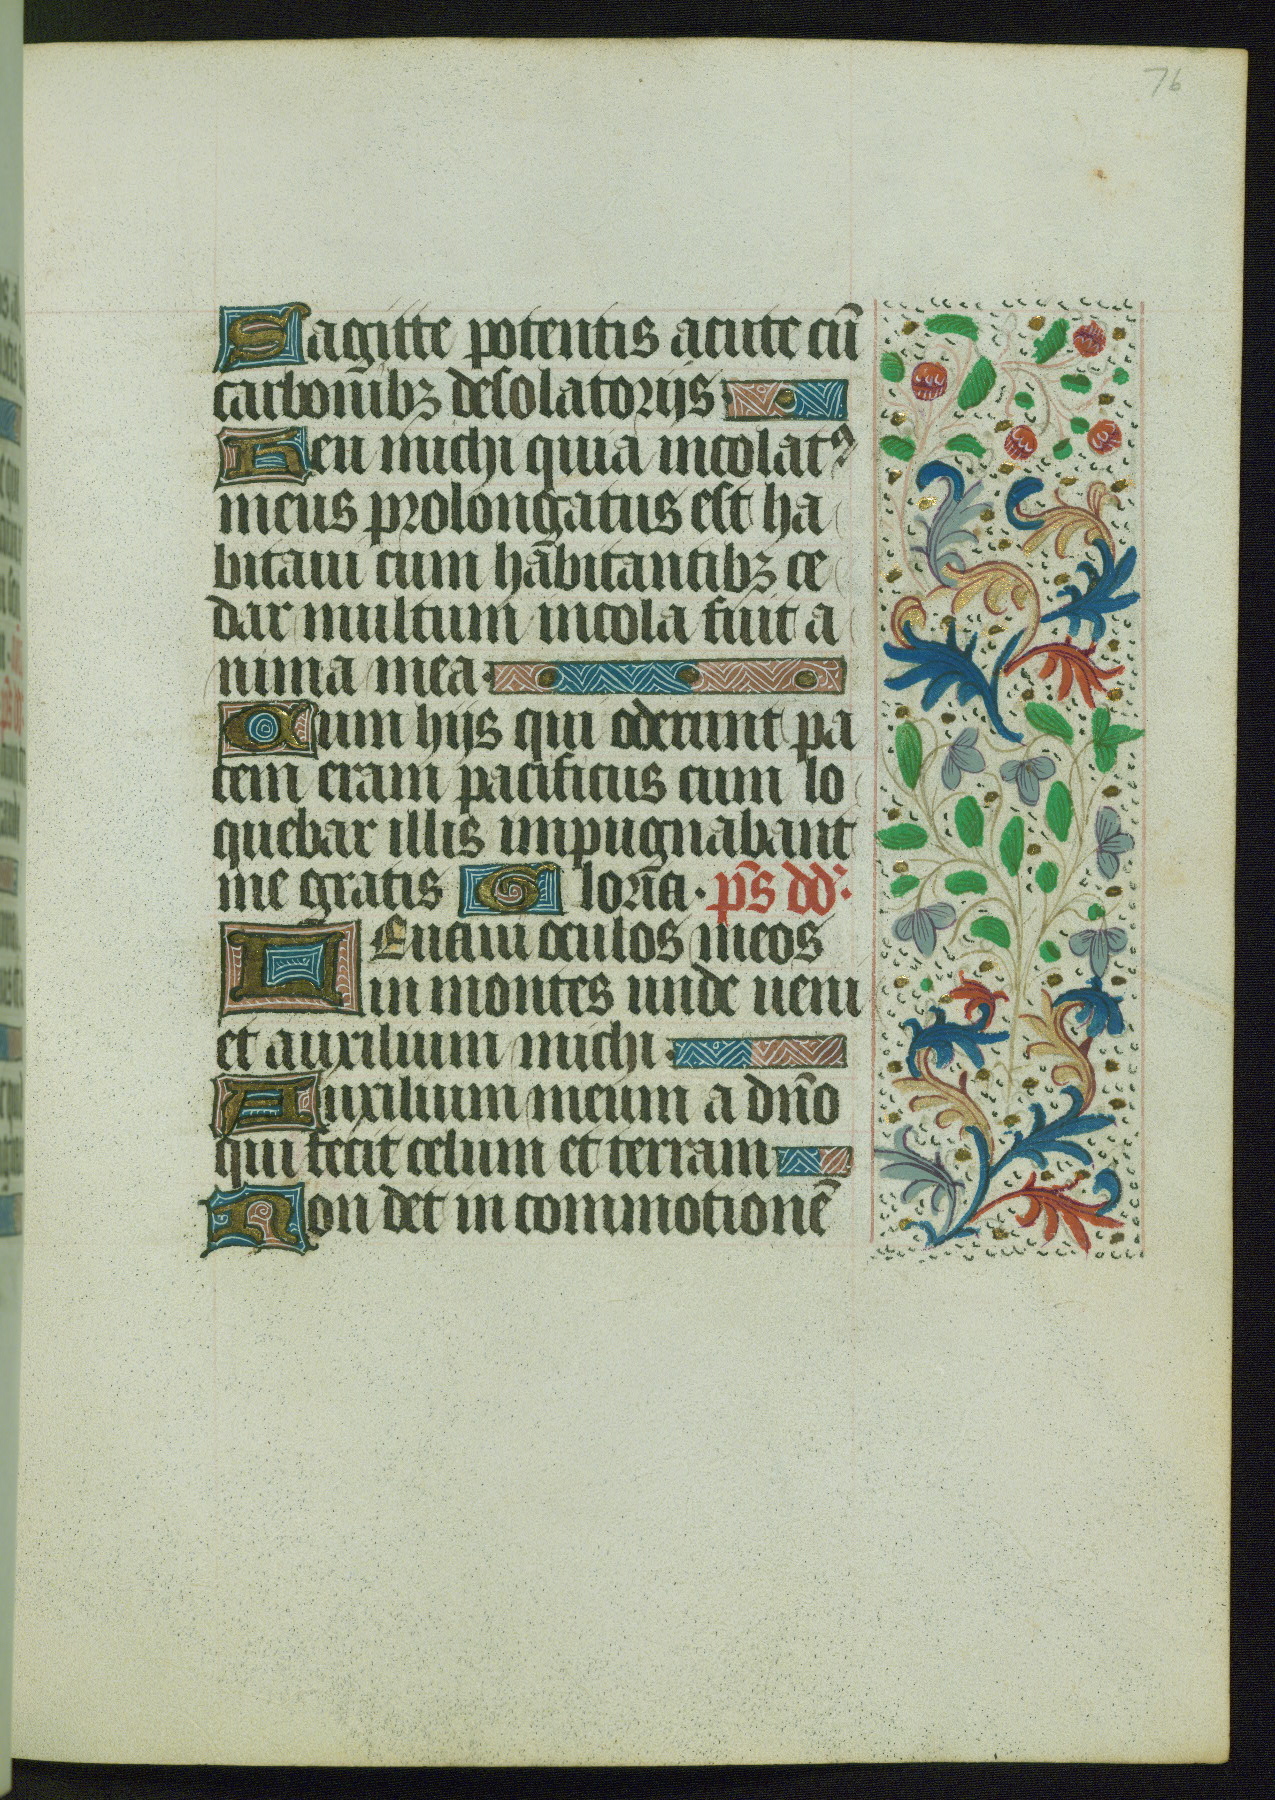 76
Sagitte potentis acute cū
carbonibꝫ desolatorijs
Heu michi quia incolatꝰ
meus prolongatus est ha
bitaui cum habitantibꝫ ce
dar multum incola fuit a
nima mea
Cum hijs qui oderunt pa
cem eram pacificus cum lo
quebar illis impugnabant
me gratis Gloria. p̄s dd.
LEuaui oculos meos
in montes unde ueni
et auxilium michi
Auxilium meum a dn̄o
qui fecit celum et terram
Non det in commotionē